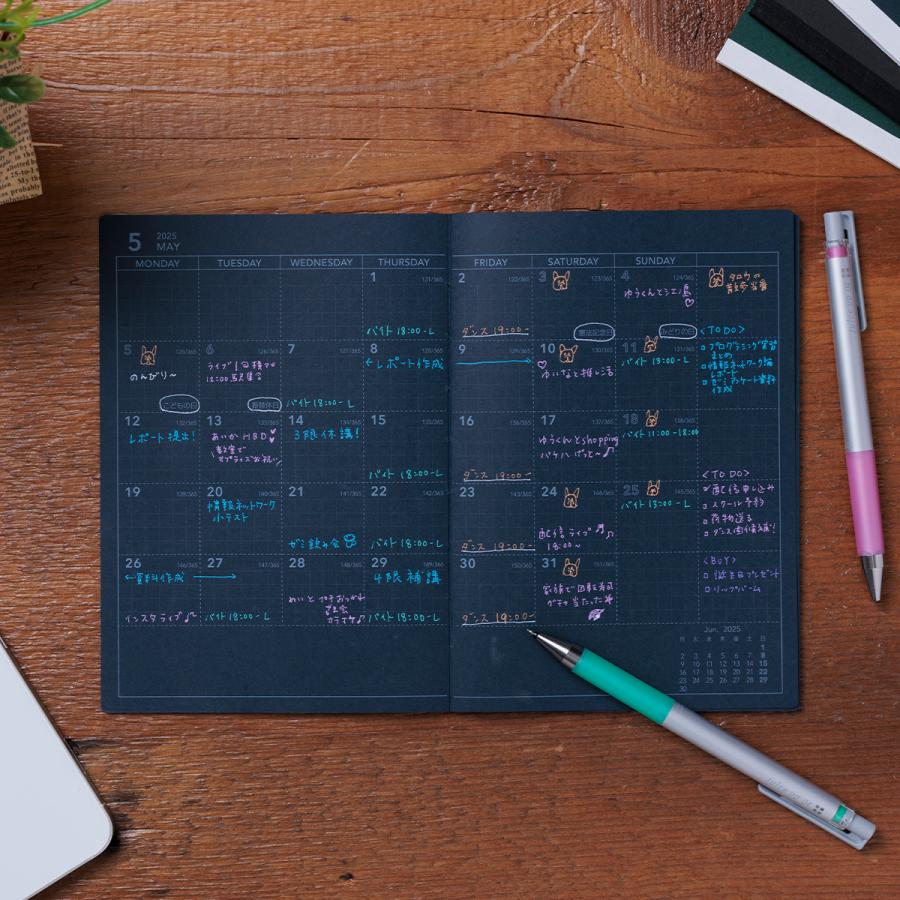 5 2025
MAY
MONDAY TUESDAY WEDNESDAY THURSDAY FRIDAY SATURDAY SUNDAY
1 121/365
バイト 18:00-L
2 122/365
ダンス 19:00-
3 123/365
憲法記念日
4 124/365
ゆうくんとシェ
みどりの日
タロウの
散歩当番
<TO DO>
プログラミング実習
まとめ
情報ネットワーク論
レポート
ゼミアンケート資料
作成
5 125/365
のんびり~
こどもの日
6 126/365
ライブ1
12:00 駅集合
振替休日
7 127/365
バイト 18:00-L
8 128/365
←レポート作成
9 129/365
10 130/365
ゆいなと推し活
11 131/365
バイト 13:00-L
12 132/365
レポート提出!
13 133/365
あいか HBD
教室で
サプライズお祝い
14 134/365
3限休講!
15 135/365
バイト 18:00-L
16 136/365
ダンス 19:00-
17 137/365
ゆうくんとshopping
18 138/365
バイト 11:00-18:00
<TO DO>
配信申し込み
スクール予約
荷物送る
ダンス曲候補!
19 139/365
20 140/365
情報ネットワーク
小テスト
21 141/365
ゼミ飲み会
22 142/365
バイト 18:00-L
23 143/365
ダンス 19:00-
24 144/365
配信ライブ
18:00~
25 145/365
バイト 13:00-L
26 146/365
←資料作成→
インスタライブ
27 147/365
バイト 18:00-L
28 148/365
めいと プチおつかれ
さま会
カラオケ
29 149/365
4限 補講
バイト 18:00-L
30 150/365
ダンス 19:00-
31 151/365
家族で回転寿司
ガチャ当たった
<BUY>
誕生日プレゼント
リップバーム
Jun. 2025
月 火 水 木 金 土 日
1
2 3 4 5 6 7 8
9 10 11 12 13 14 15
16 17 18 19 20 21 22
23 24 25 26 27 28 29
30